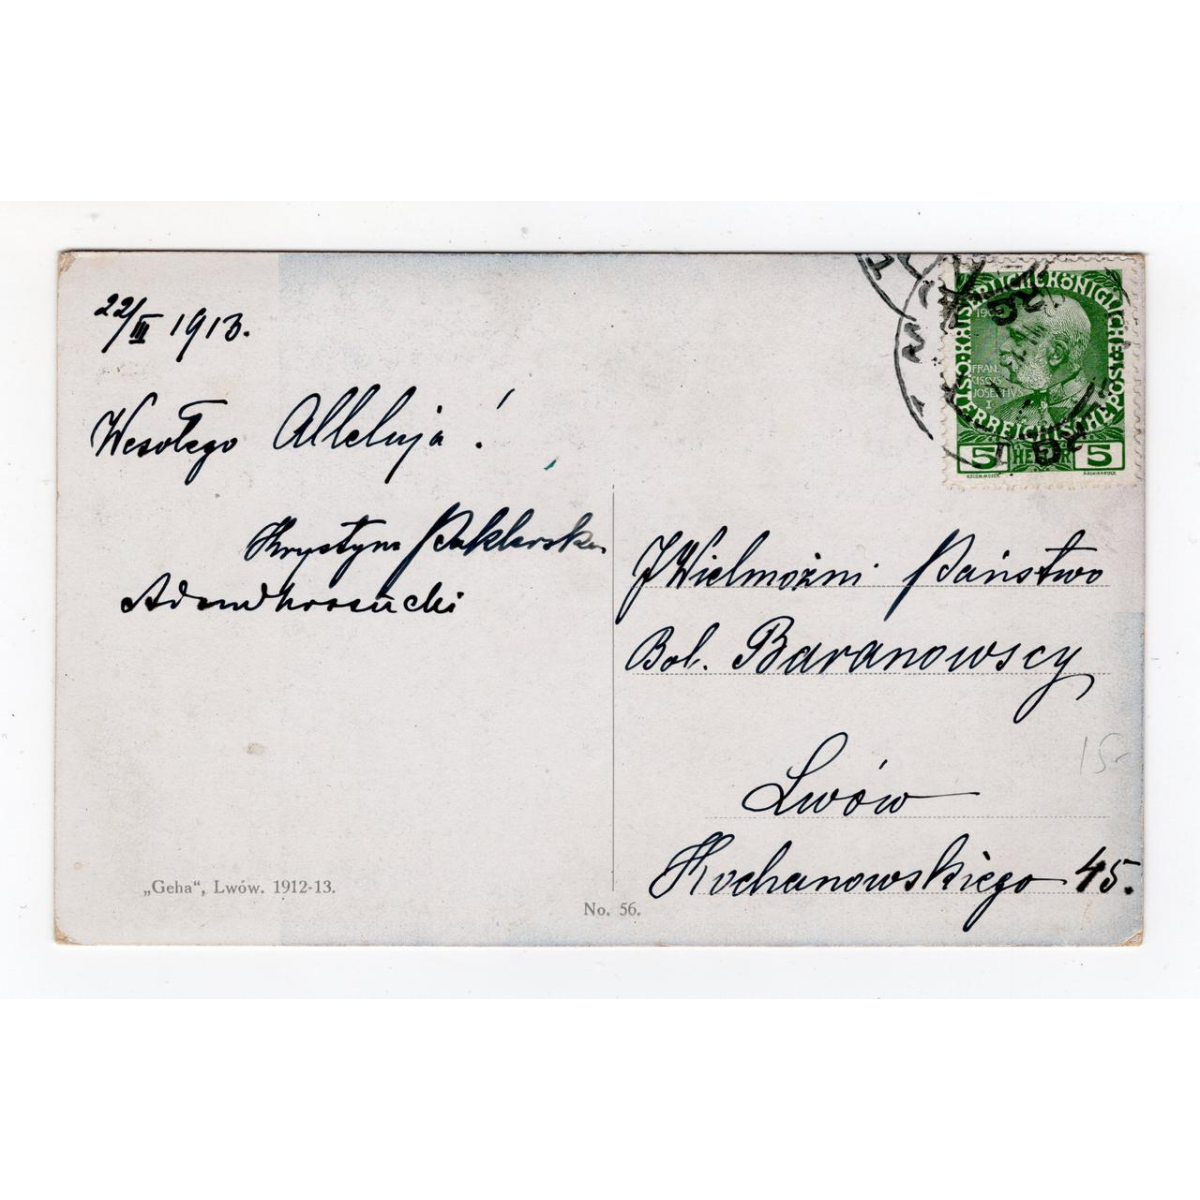 22/III 1913.
Wesołego Alleluja!
Krystyna
Adam
„Geha“, Lwów. 1912-13.
No. 56.
KAISERLICHE KÖNIGLICHE ÖSTERREICHISCHE POST
FRAN
CISCVS
JOSEPHVS
I
5 HELLER 5
JWielmożni Państwo
Bol. Baranowscy
Lwów
Kochanowskiego 45.
15-